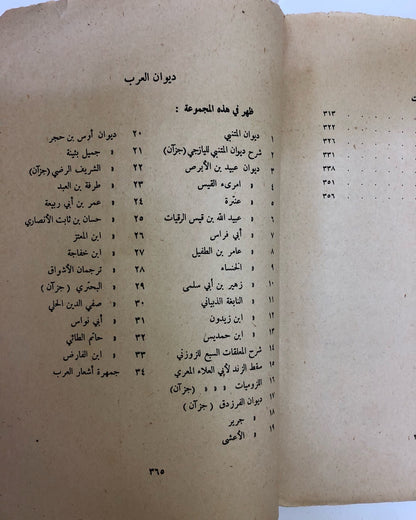 ديوان العرب
ظهر في هذه المجموعة :
١ ديوان المتنبي
٢ شرح ديوان المتنبي لليازجي (جزآن)
٣ ديوان عبيد بن الأبرص
٤ » امرىء القيس
٥ » عنترة
٦ » عبيد الله بن قيس الرقيات
٧ » أبي فراس
٨ » عامر بن الطفيل
٩ » الخنساء
١٠ » زهير بن أبي سلمى
١١ » النابغة الذبياني
١٢ » ابن زيدون
١٣ » ابن حمديس
١٤ شرح المعلقات السبع للزوزني
١٥ سقط الزند لأبي العلاء المعري
١٦ اللزوميات » » » (جزآن)
١٧ ديوان الفرزدق ( جزآن )
١٨ » جرير
١٩ » الأعشى
٢٠ ديوان أوس بن حجر
٢١ » جميل بثينة
٢٢ » الشريف الرضي (جزآن)
٢٣ » طرفة بن العبد
٢٤ » عمر بن أبي ربيعة
٢٥ » حسان بن ثابت الأنصاري
٢٦ » ابن المعتز
٢٧ » ابن خفاجة
٢٨ » ترجمان الأشواق
٢٩ » البحتري ( جزآن )
٣٠ » صفي الدين الحلي
٣١ » أبي نواس
٣٢ » حاتم الطائي
٣٣ » ابن الفارض
٣٤ جمهرة أشعار العرب
٣٦٥
٣١٣
٣٢٢
٣٣١
٣٣٨
٣٥١
٣٥٦